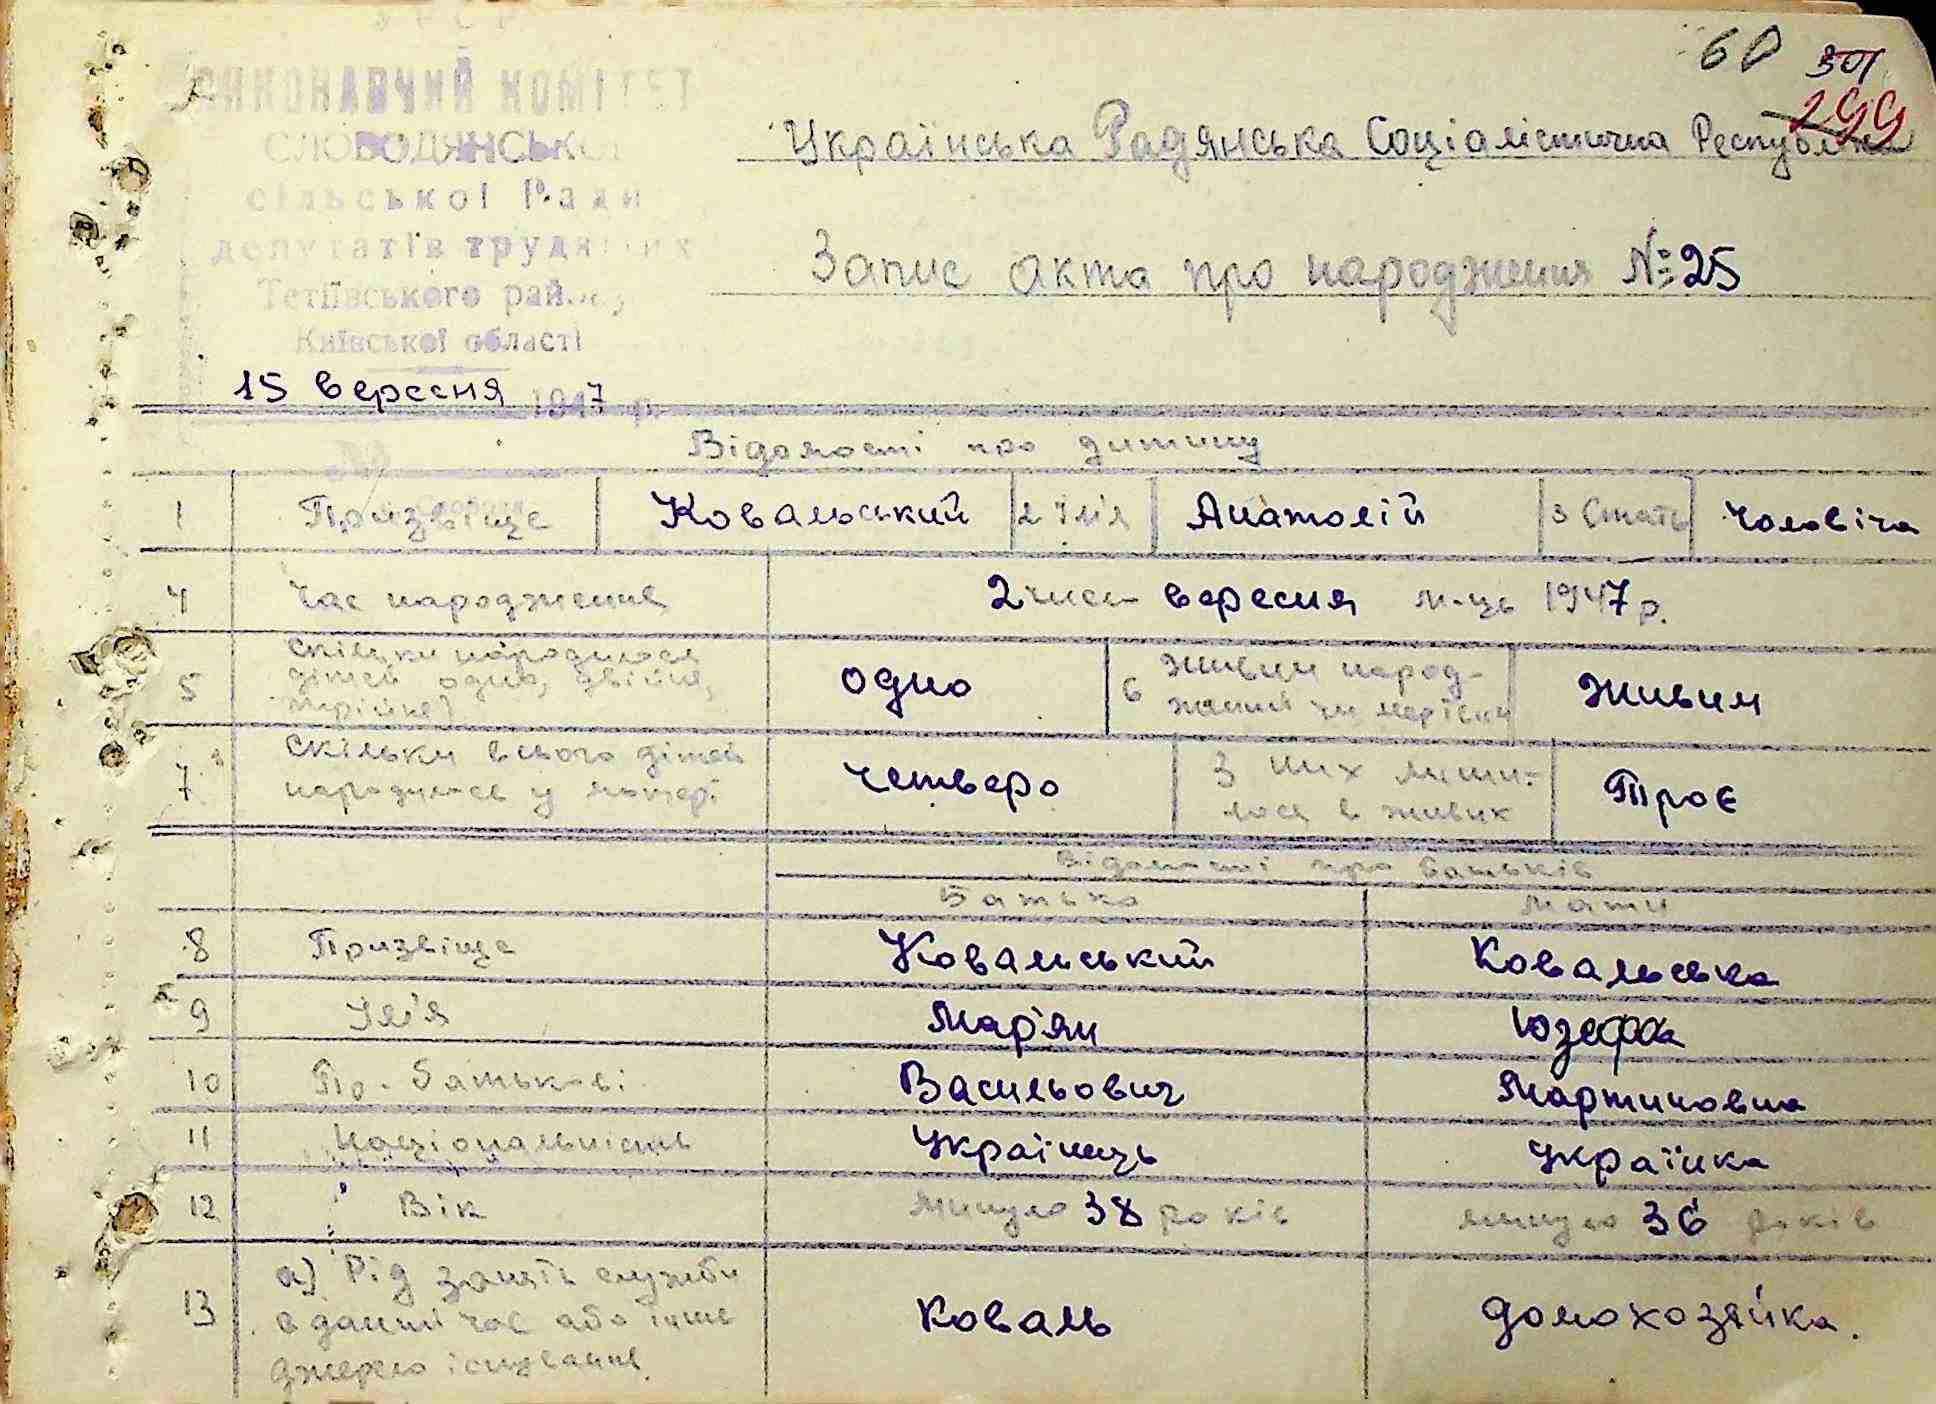 УРСР
ВИКОНАВЧИЙ КОМІТЕТ
СЛОБОДЯНСЬКОЇ
сільської Ради
депутатів трудящих
Тетіївського району
Київської області
15 вересня 1947 р.
60 301
299
Українська Радянська Соціалістична Республіка
Запис акта про народження №25
Відомості про дитину
1 Призвіще Ковальський 2 Ім'я Анатолій 3 Стать чоловіча
4 Час народження 2 числ вересня м-ць 1947 р.
5 Скільки народилося
дітей одно, двійня,
трійня) одно 6 живим народ-
жений чи мертвим живим
7 Скільки всього дітей
народилось у матері четверо З них лиши-
лося в живих Троє
Відомості про батьків
Батько Мати
8 Призвіще Ковальський Ковальська
9 Ім'я Мар'ян Юзефа
10 По-батькові Васильович Мартиновна
11 Національність Українець Українка
12 Вік минуло 38 років минуло 36 років
13 а) Рід занять служби
в даний час або інше
джерело існування Коваль домохозяйка.